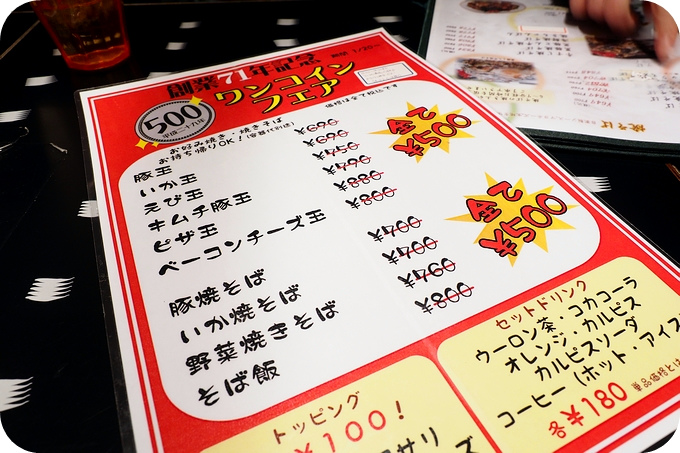 創業71年記念
ワンコイン
フェア
500
お好み焼き・焼きそば
お持ち帰りOK!(容器代別途)
価格は全て税別です
豚玉
いか玉
えび玉
キムチ豚玉
ピザ玉
ベーコンチーズ玉
¥690
¥690
¥750
¥880
¥800
全て
¥500
豚焼そば
いか焼そば
野菜焼きそば
そば飯
¥700
¥700
¥690
¥800
全て
¥500
トッピング
¥100!
セットドリンク
ウーロン茶・コカコーラ
オレンジ・カルピス
カルピスソーダ
コーヒー(ホット・アイス
各¥180
単品価格とは
焼そば